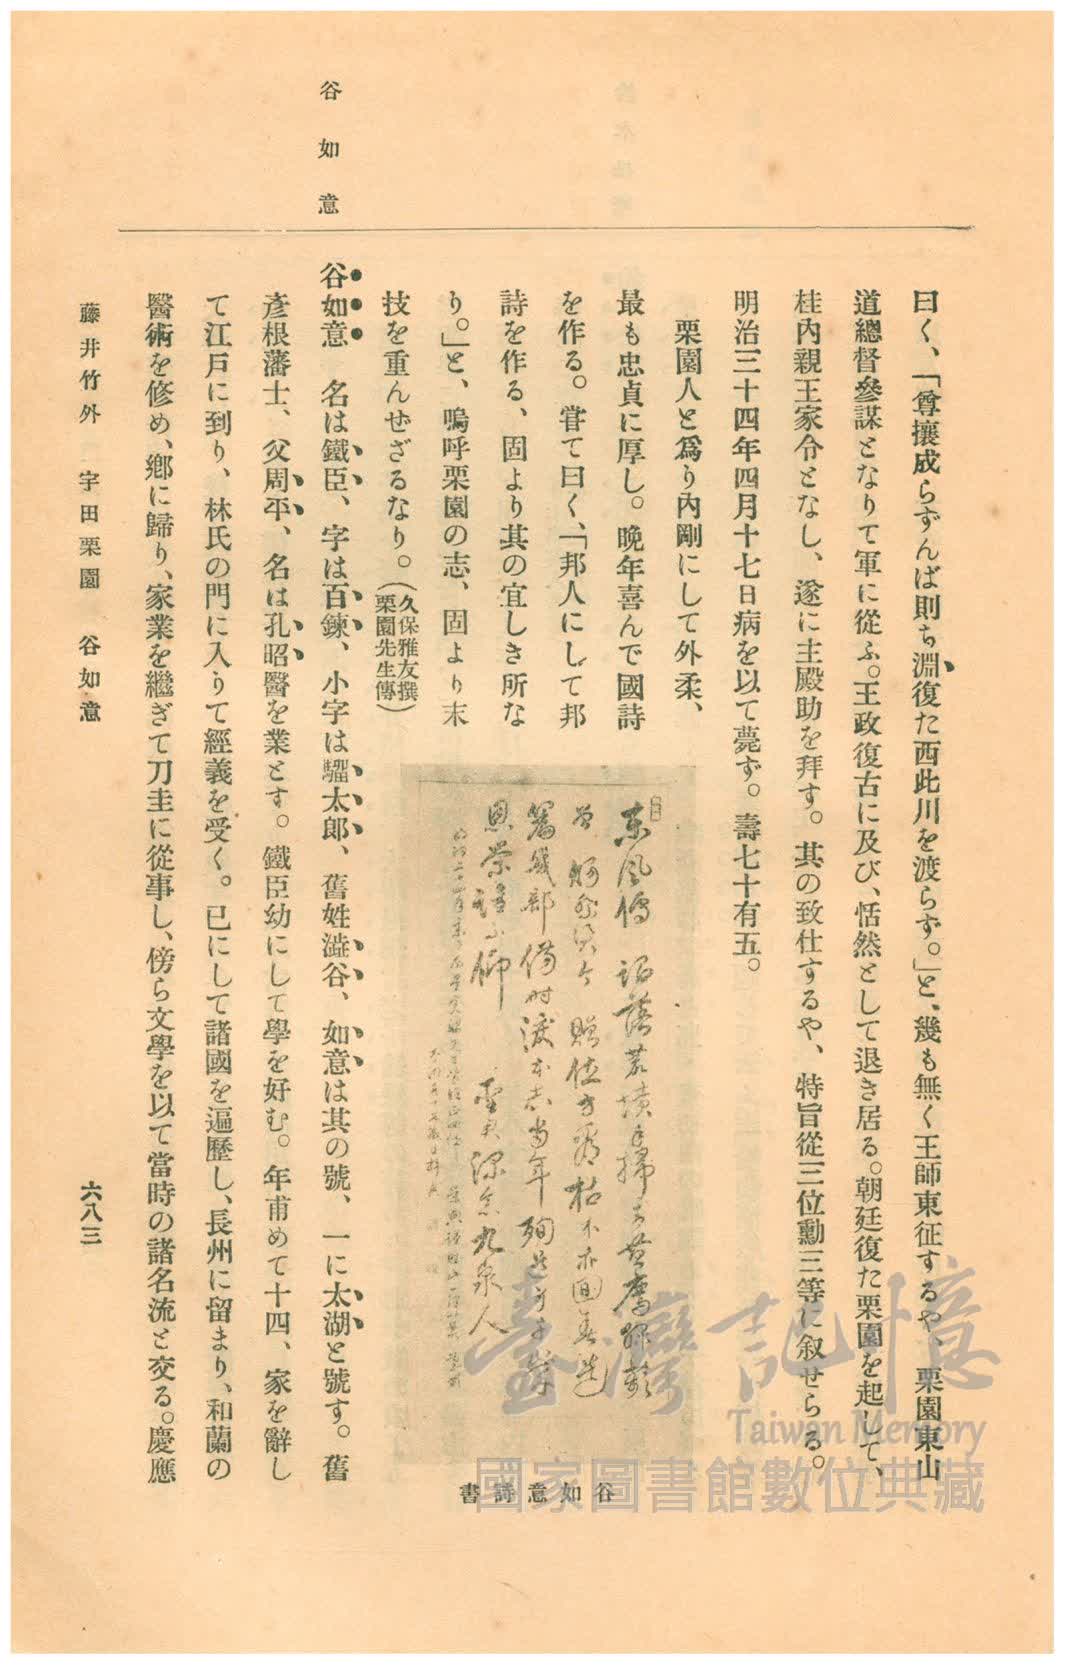 谷如意
曰く、「尊攘成らずんば則ち淵復た西此川を渡らず。」と、幾も無く王師東征するや、栗園東山
道總督參謀となりて軍に從ふ。王政復古に及び、恬然として退き居る。朝廷復た栗園を起して、
桂內親王家令となし、遂に主殿助を拜す。其の致仕するや、特旨從三位勳三等に叙せらる。
明治三十四年四月十七日病を以て薨ず。壽七十有五。
栗園人と爲り內剛にして外柔、
最も忠貞に厚し。晩年喜んで國詩
を作る。甞て曰く、「邦人にして邦
詩を作る、固より其の宜しき所な
り。」と、嗚呼栗園の志、固より末
技を重んぜざるなり。(久保雅友撰
栗園先生傳)
谷如意 名は鐵臣、字は百鍊、小字は騮太郎、舊姓澁谷、如意は其の號、一に太湖と號す。舊
彥根藩士、父周平、名は孔昭醫を業とす。鐵臣幼にして學を好む。年甫めて十四、家を辭し
て江戶に到り、林氏の門に入りて經義を受く。已にして諸國を遍歷し、長州に留まり、和蘭の
醫術を修め、鄕に歸り、家業を繼ぎて刀圭に從事し、傍ら文學を以て當時の諸名流と交る。慶應
谷如意詩書
藤井竹外 宇田栗園 谷如意
六八三
臺灣記憶
Taiwan Memory
國家圖書館數位典藏